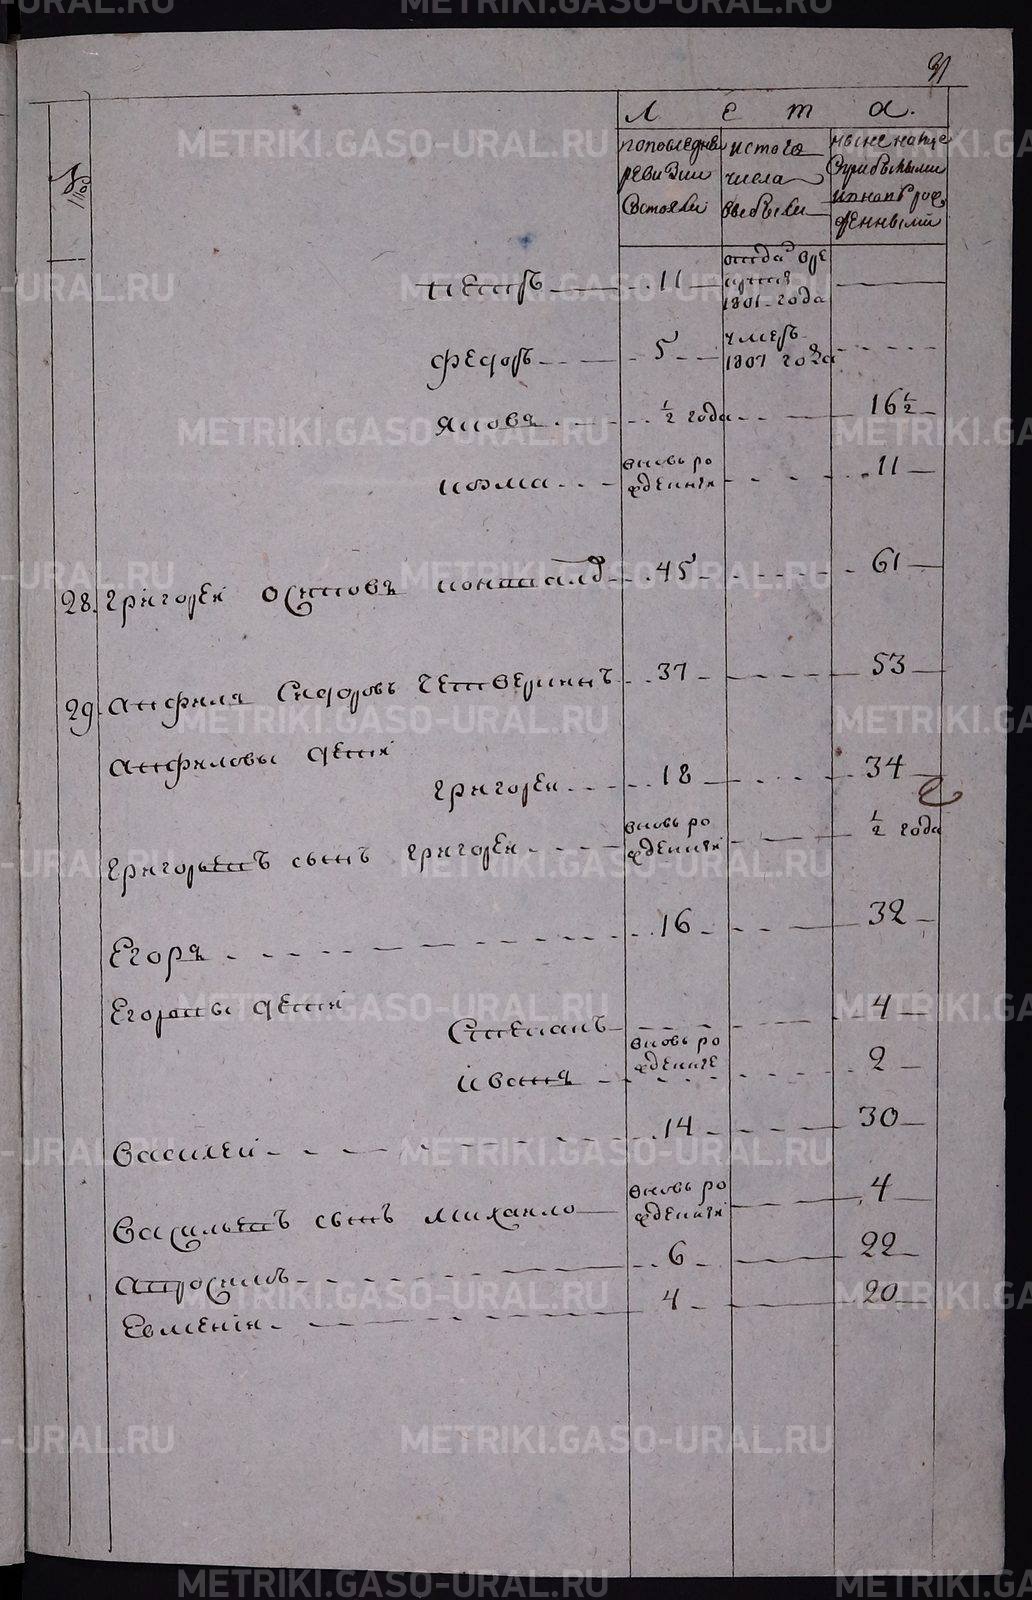 31
Лета.
№
попоследней
ревизии
состояли
истого
числа
выбыли
ныне налице
сприбылыми
ивновь рож
денными
петръ 11 отдавре
круты
1801 года
федоръ 5 умеръ
1807 года
яковъ ½ года 16½
козма вновь ро
жденнеи 11
28. григореи осиповъ коншаль 45 61
29. анфила сидоровъ четверинъ 37 53
анфиловы дети
григореи 18 34
григорьевъ сынъ григореи вновь ро
жденнеи ½ года
Егоръ 16 32
Егоровы дети
степанъ 4
иванъ вновь ро
жденние 2
василеи 14 30
васильевъ сынъ михаило вновь ро
жденнеи 4
амросимъ 6 22
Евмении 4 20
METRIKI.GASO-URAL.RU